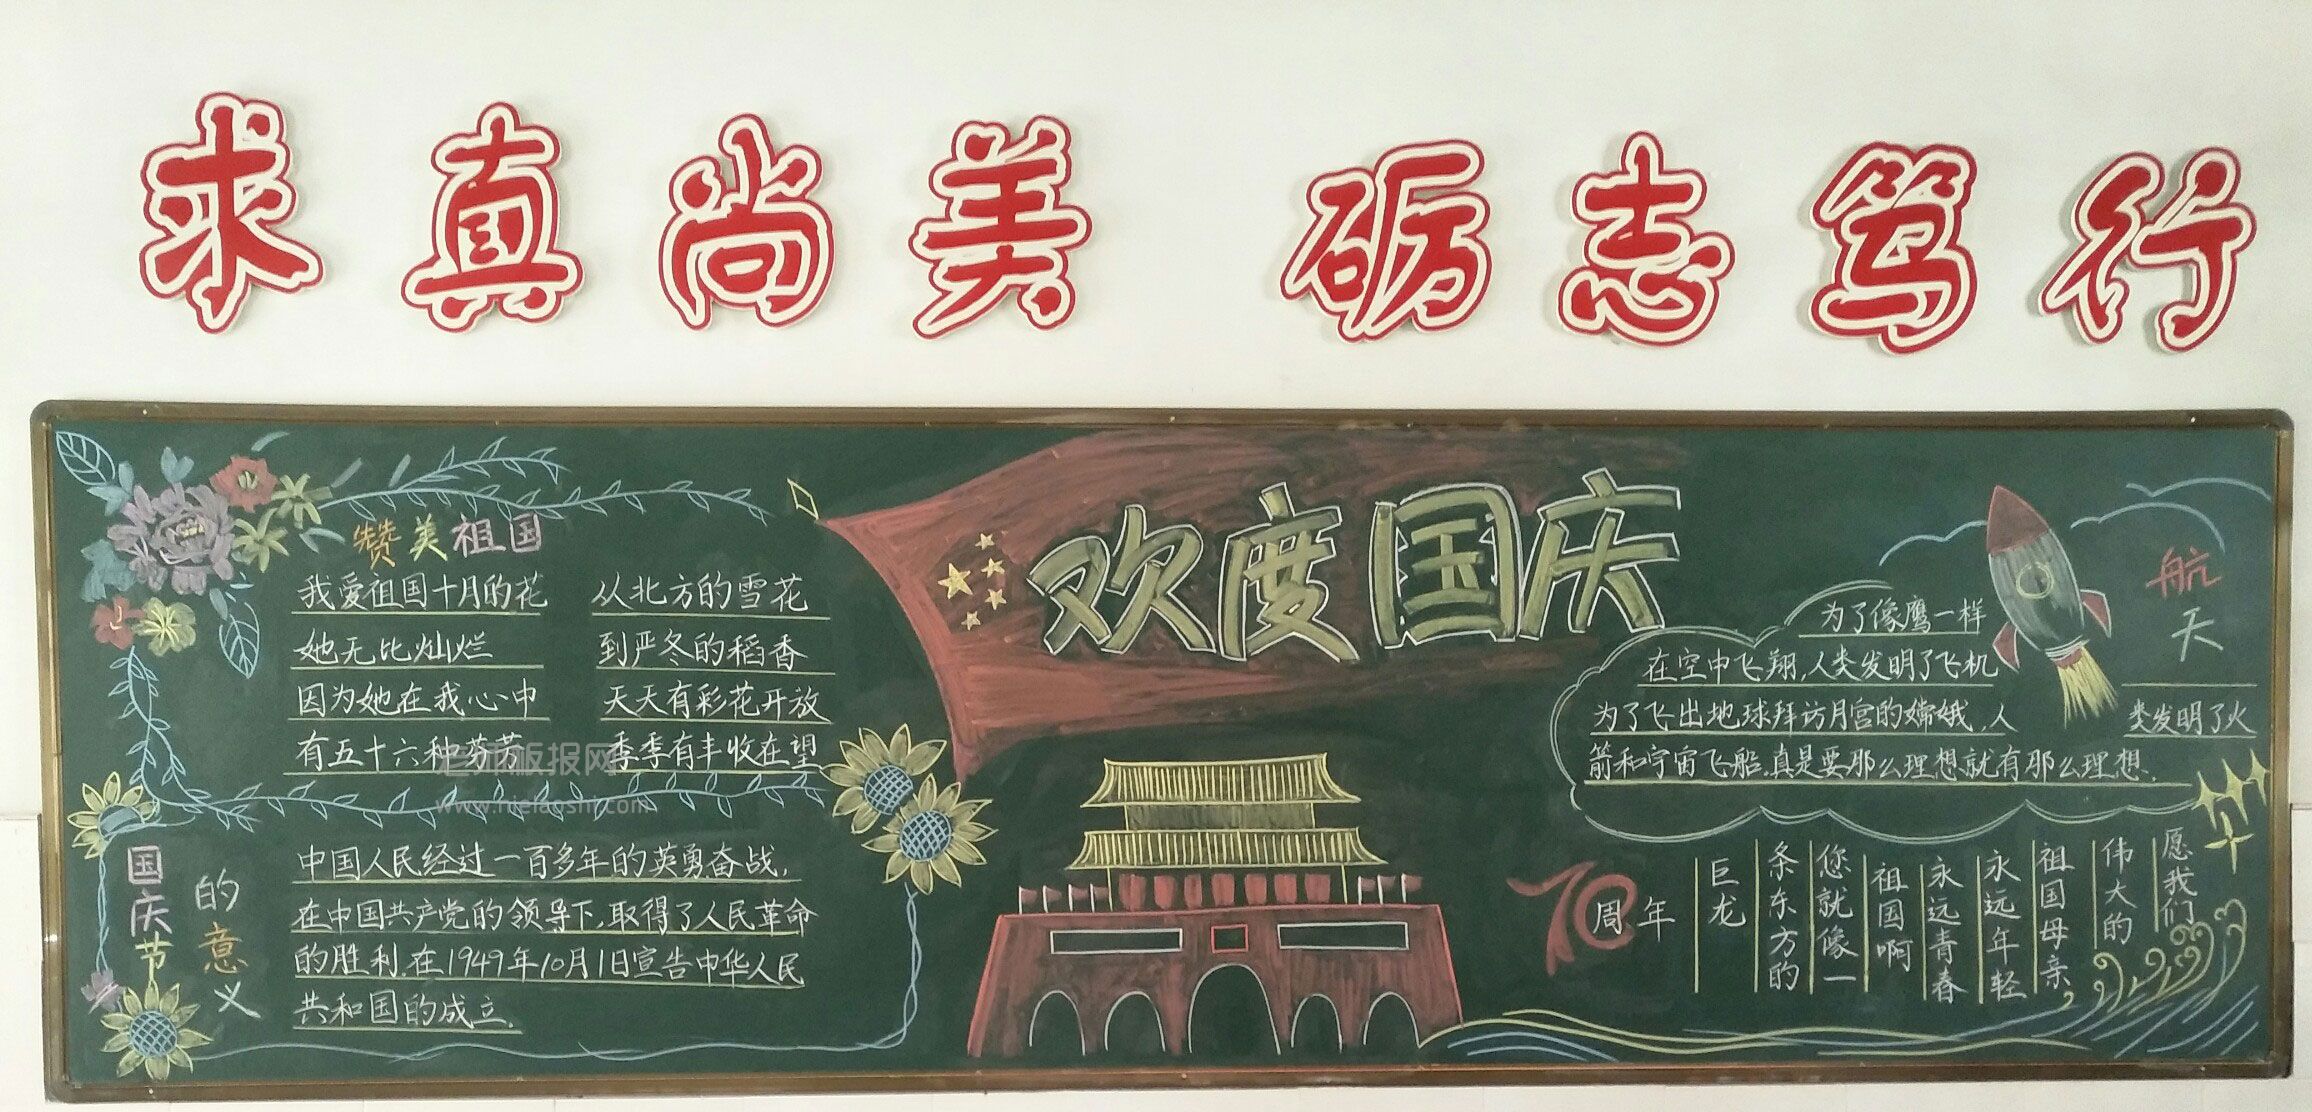 求真尚美 砺志笃行
欢度国庆
赞美祖国
我爱祖国十月的花
她无比灿烂
因为她在我心中
有五十六种芬芳
从北方的雪花
到严冬的稻香
天天有彩花开放
季季有丰收在望
老师板报网
www.hielaoshi.com
国庆节
的意义
中国人民经过一百多年的英勇奋战,
在中国共产党的领导下,取得了人民革命
的胜利.在1949年10月1日宣告中华人民
共和国的成立.
航天
为了像鹰一样
在空中飞翔,人类发明了飞机
为了飞出地球拜访月宫的嫦娥,人类发明了火
箭和宇宙飞船.真是要那么理想就有那么理想.
70周年
愿我们
伟大的
祖国母亲
永远年轻
永远青春
祖国啊
您就像一
条东方的
巨龙